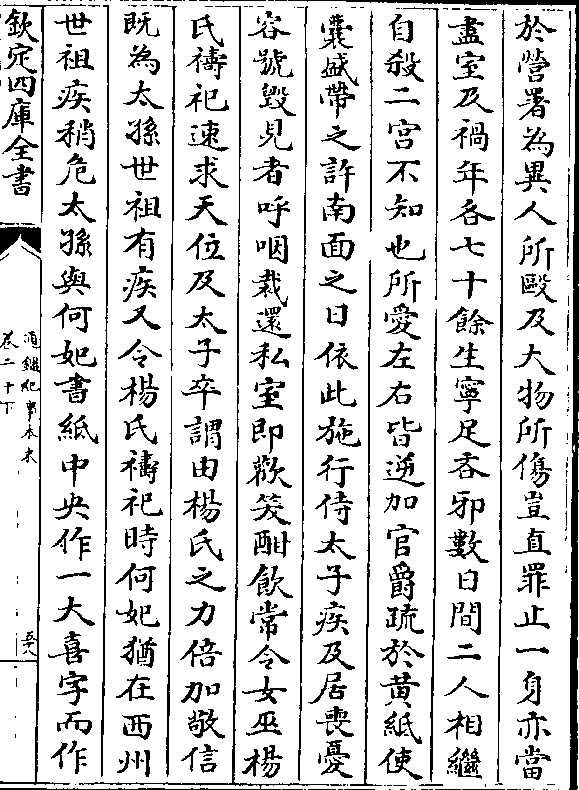 於營署為異人所毆及犬物所傷豈直罪止一身亦當
盡室及禍年各七十餘生寧足吝邪數日間二人相繼
自殺二宮不知也所愛左右皆逆加官爵疏於黄紙使
囊盛帶之許南面之日依此施行侍太子疾及居喪憂
容號毁見者呼咽裁還私室即歡笑酣飲常令女巫楊
氏禱祀速求天位及太子卒謂由楊氏之力倍加敬信
既為太孫世祖有疾又令楊氏禱祀時何妃猶在西州
世祖疾稍危太孫與何妃書紙中央作一大喜字而作
欽定四庫全書
通鑑紀事本末
卷二十下